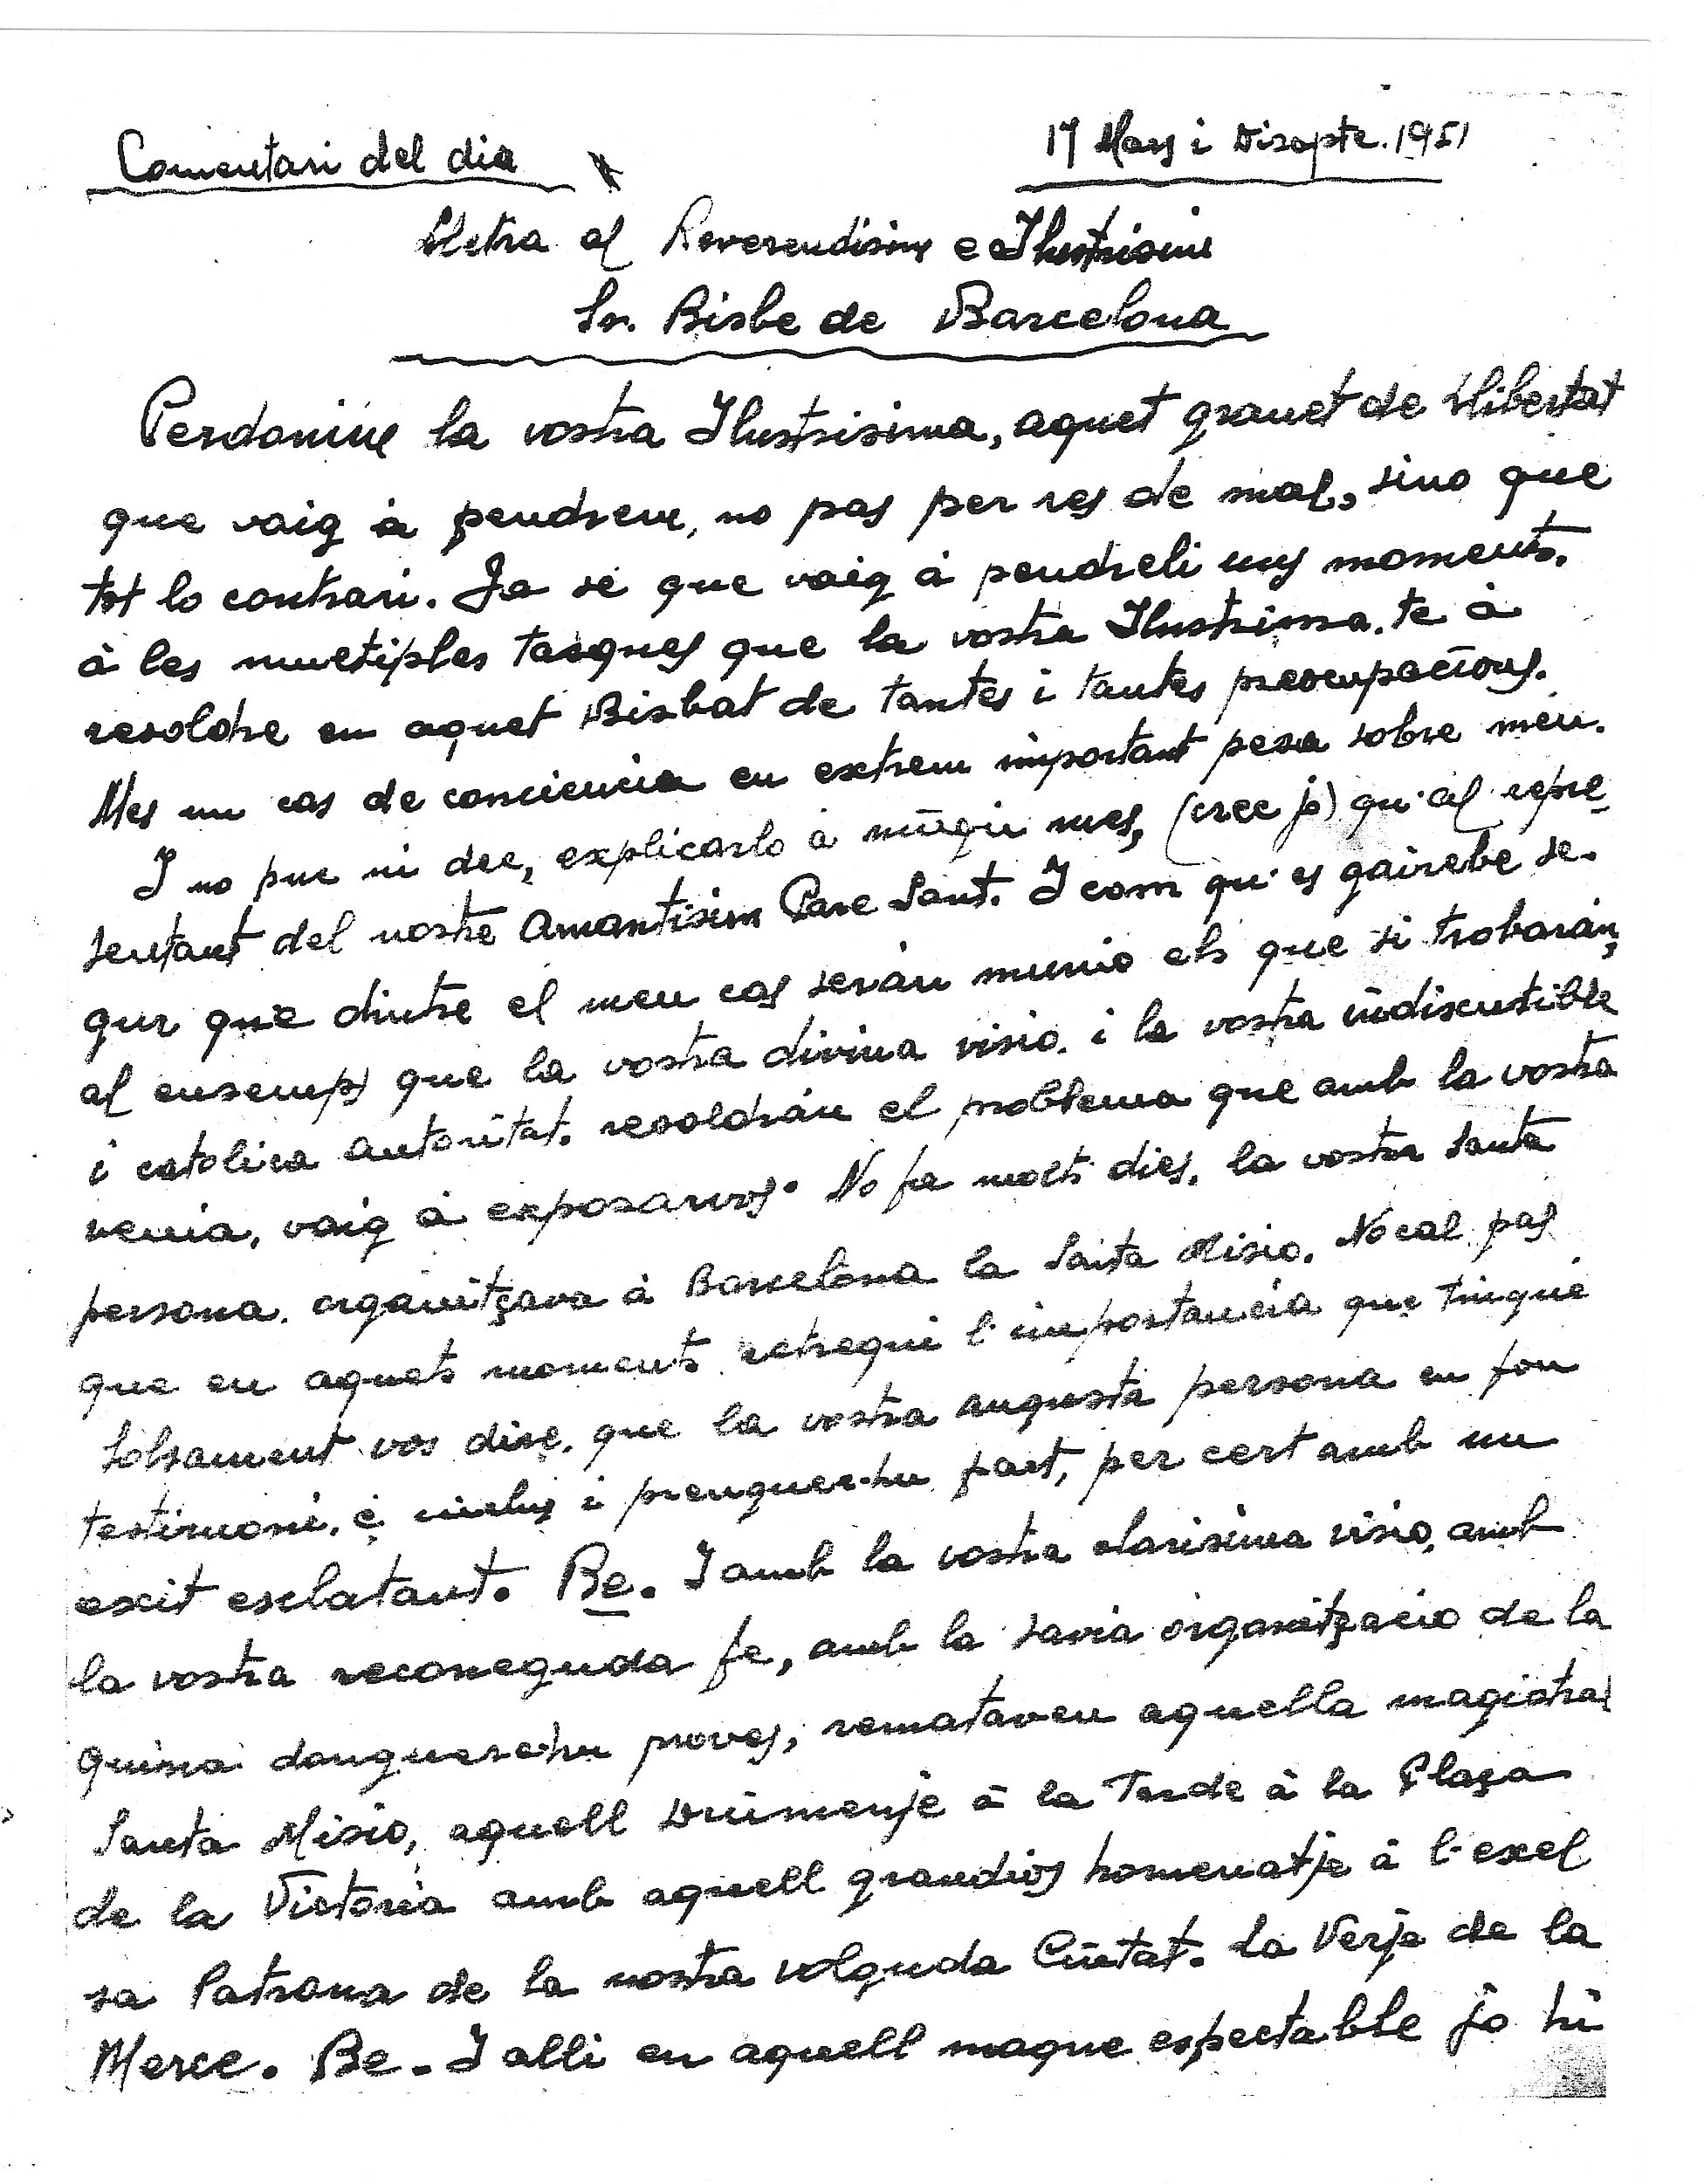 Comentari del dia
17 Mars i Disapte. 1951
Lletra al Reverendisim e Ilustrisim
Sr. Bisbe de Barcelona
Perdonim la vostra Ilustrisima, aquet granet de llibertat
que vaig à pendrem, no pas per res de mal, sino que
tot lo contrari. Ja sé que vaig à pendreli uns moments.
à les multiples tasques que la vostra Ilustrissima, te à
resoldre en aquet Bisbat de tantes i tantes preocupacions.
Mes un cas de conciencia en extrem important pesa sobre meu.
I no puc ni dec, explicarlo à ningú mes, (crec jo) qu'al repre
sentant del nostre Amantisim Pare Sant. I com qu'es gairebe se-
gur que dintre el meu cas serán munio els que si trobarán,
al ensemps que la vostra divina visio. i la vostra indiscutible
i catolica autoritat. resoldrán el problema que amb la vostra
venia, vaig à exposarvos. No fa molts dies, la vostra Santa
persona. organitçava à Barcelona la Santa Misio. No cal pas
que en aquets moments retregui l'importancia que tingué
Solsament vos diré, que la vostra augusta persona en fou
testimoni, é inclus i prenguer-hu part, per cert amb un
exit esclatant. Be. I amb la vostra clarisima visio, amb
la vostra reconeguda fe, amb la savia organitçacio de la
quina donguere-hu proves, remataven aquella magistral
Santa Misio, aquell Diumenje à la Tarde à la Plaça
de la Victoria amb aquell grandios homenatje à l'excel
sa Patrona de la nostra volguda Ciutat. La Verje de la
Merce. Be. I alli en aquell magne espectable jo hi